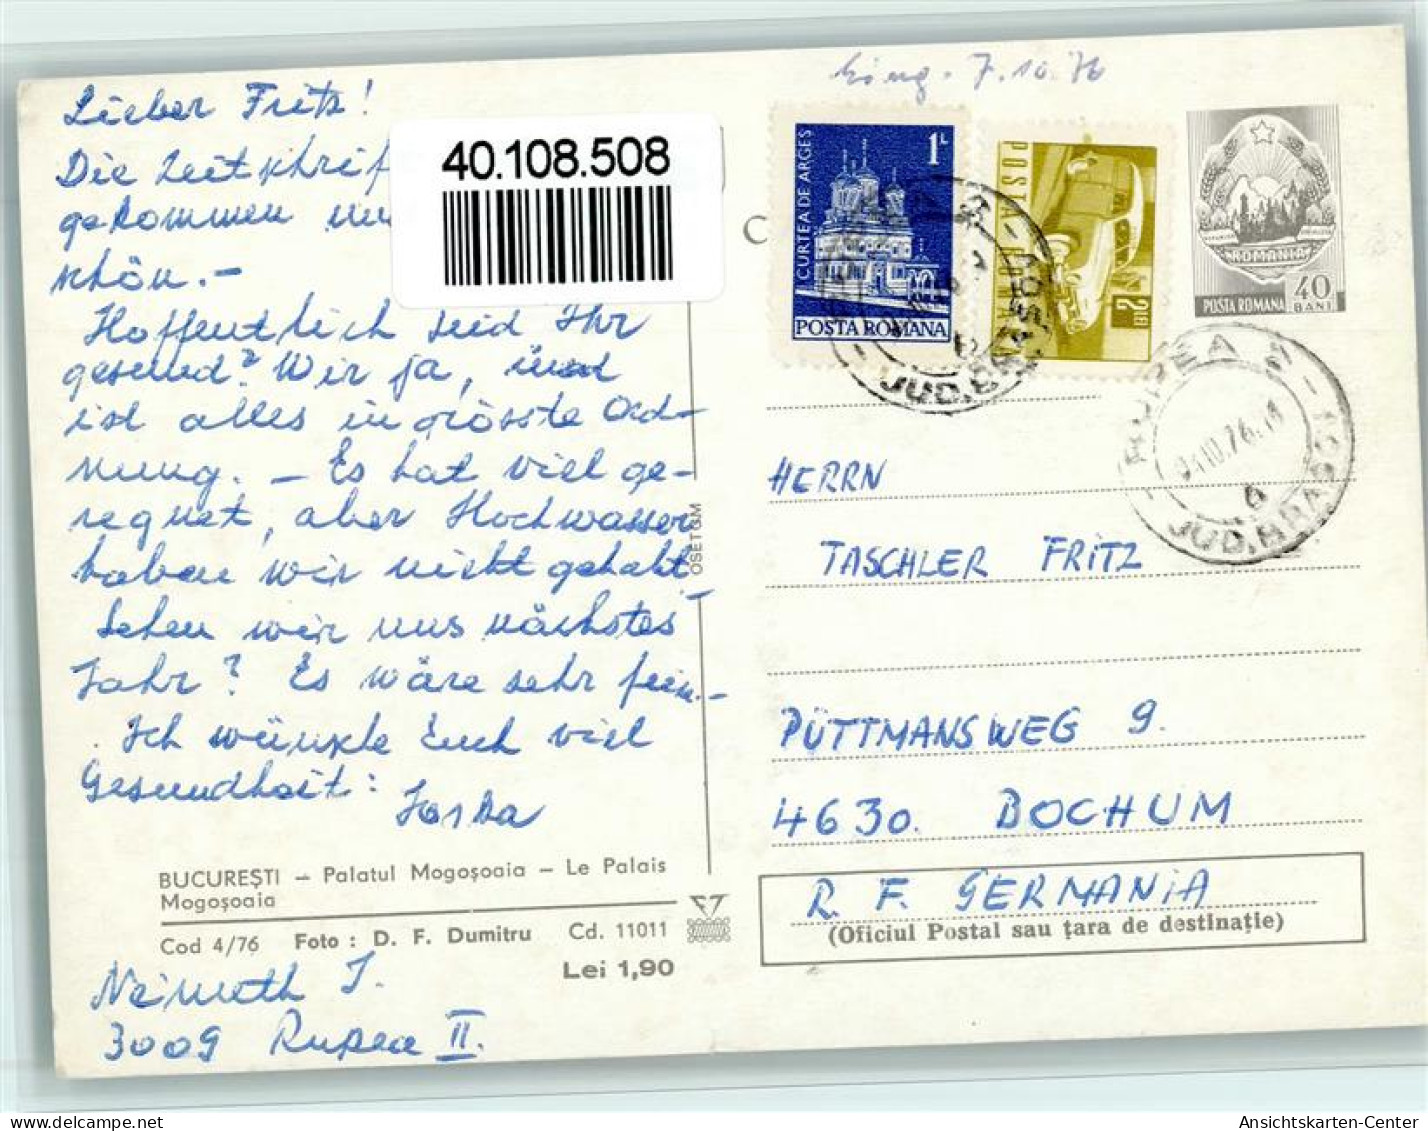 Lieber Fritz!
Die Zeitschrif
gekommen
schön.-
Hoffentlich seid Ihr
gesund? Wir ja, und
ist alles in grösste Ord-
nung. - Es hat viel ge-
regnet, aber Hochwasser
haben wir nicht gehabt.
Sehen wir uns nächstes
Jahr? Es wäre sehr fein.-
Ich wünsche Euch viel
Gesundheit:
Joska
BUCUREȘTI - Palatul Mogoșoaia - Le Palais
Mogoșoaia
Cod 4/76 Foto : D. F. Dumitru Cd. 11011
Lei 1,90
Németh J.
3009 Rupea II.
40.108.508
OSETGM
Eing. 7.10.76
C
1L
CURTEA DE ARGEȘ
POSTA ROMANA
POSTA ROMANA
2 LEI
JUD. BRASOV
ROMANIA
POSTA ROMANA 40 BANI
RUPEA
10.76
6
JUD. BRASOV
HERRN
TASCHLER FRITZ
PÜTTMANSWEG 9.
4630. BOCHUM
R. F. GERMANIA
(Oficiul Postal sau țara de destinație)
AnsichtsKarten-Center